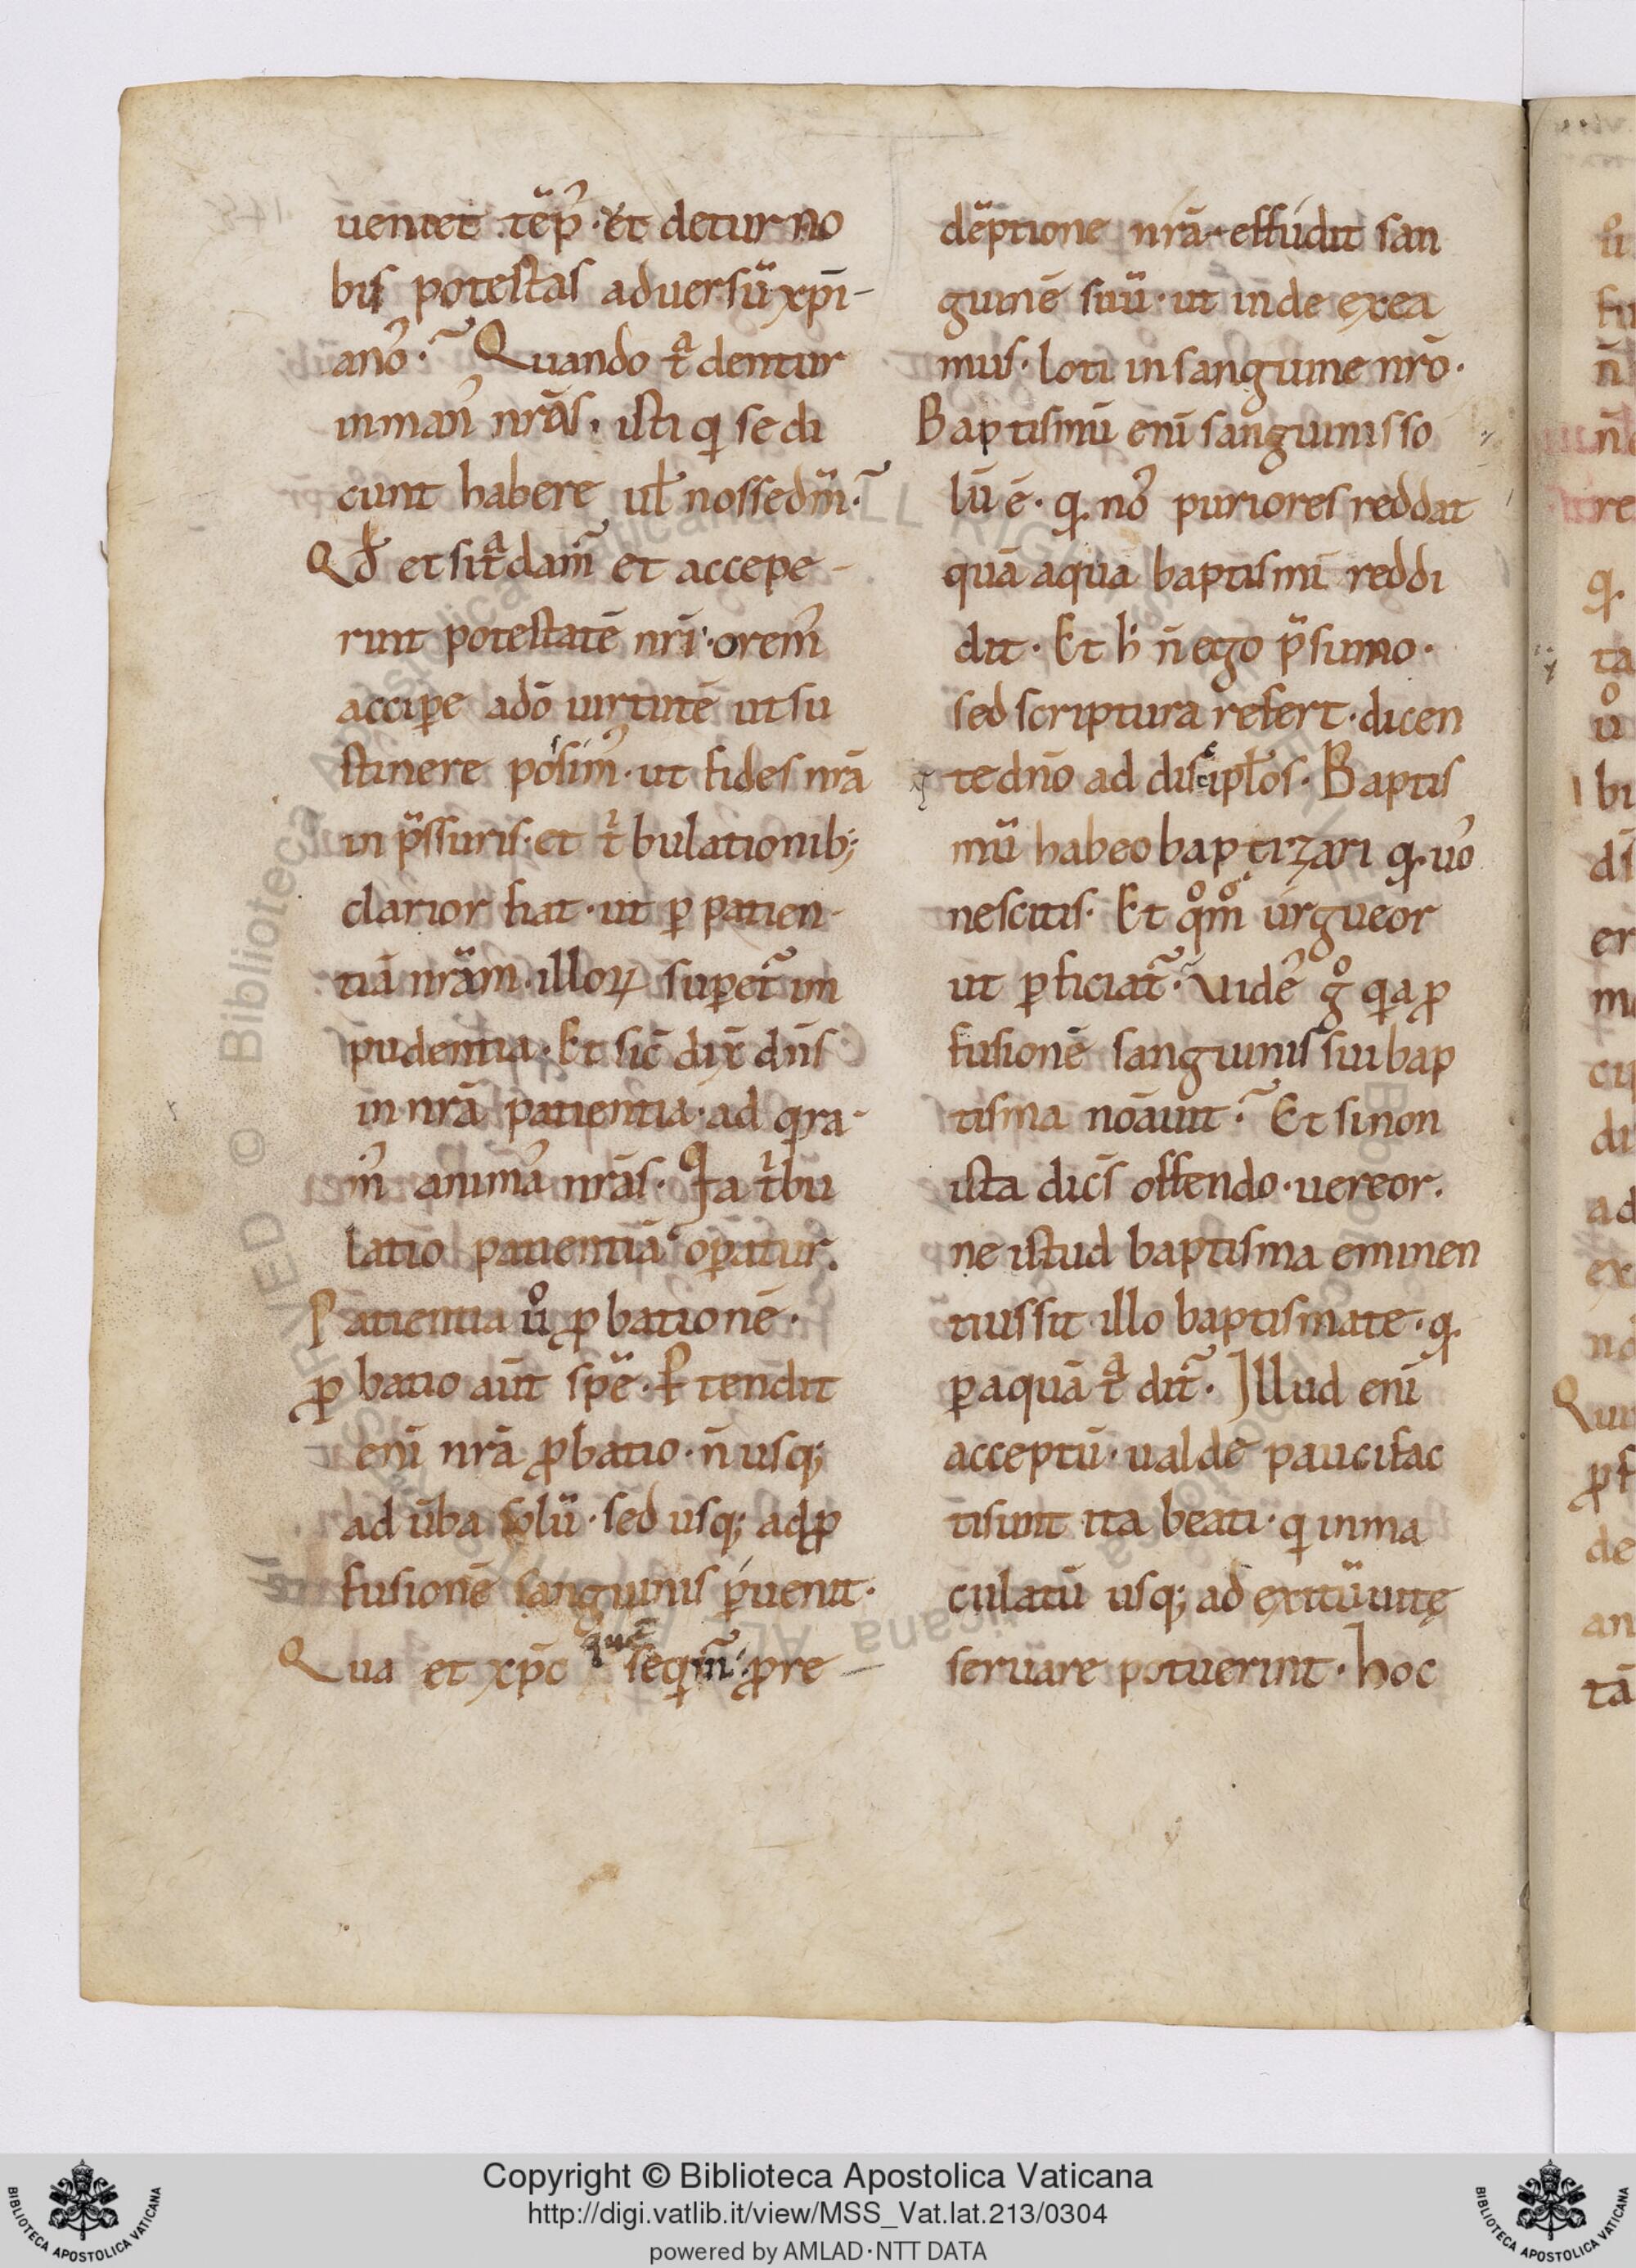 ueniet tēp̄ʼ· et detur no
bis potestas aduersū xp̄i-
anoʼ·~ Quando tᵃdentur
inmanʼ nrās· isti qͥ se di
cunt habere ul̄ nosse dm̄·~
Qđ et si tᵃdam̃ et accepe-
runt potestatē nrī· orem̃
accip̄e adō uirtutē ut su
stinere possimʼ· ut fides nrā
in p̄ssuris· et tͥbulationib;
clarior fiat· ut ꝑ patien-
tiā nrām· illoꝝ supet̃ im
pudentia· Et sic̄ dix̄ dn̄s
in nrā patientia· ad qͥra-
mʼ animʼa nrās· Ita tͥbu
latio patientiā operatur·
Patientia ůꝓbationē·
ꝓbatio aūt spē· P̄tendit
eni nrā ꝓbatio· n̄ usq;
ad ūba solū· sed usq; adꝓ
fusionē sanguinis ꝑuenit·
Qua et xp̄c quē seqͥm̃· ꝓ re-
dēptione nrā· effudit san
guinē suū· ut inde exea
mus· loti in sanguine nrō·
Baptismū enī sanguinis so
lū ē· q· noʼ puriores reddat
quā aqua baptismi reddi
dit· Et h̓ n̄ ego p̄sumo·
sed scriptura refert· dicen
te dn̄o ad discipl̄os· Baptis
mū habeo baptizari q· uoʼ
nescitis· Et qͦmͦ urgueor
ut ꝑficiat̃· Uideʼ gͦ qͥa ꝓ
fusionē sanguinis sui bap
tisma nōauit·~ Et si non
ista dic̄s offendo· uereor·
ne istud baptisma eminen
tius sit illo baptismate· q·
ꝑ aquā tᵃdit̃· Illud enī
acceptū· ualde pauci fac
ti sunt ita beati· qͥ inma
culatū usq; ad exitū uitę
seruare potuerint· hoc
Copyright © Biblioteca Apostolica Vaticana
http://digi.vatlib.it/view/MSS_Vat.lat.213/0304
powered by AMLAD·NTT DATA
BIBLIOTECA APOSTOLICA VATICANA
BIBLIOTECA APOSTOLICA VATICANA